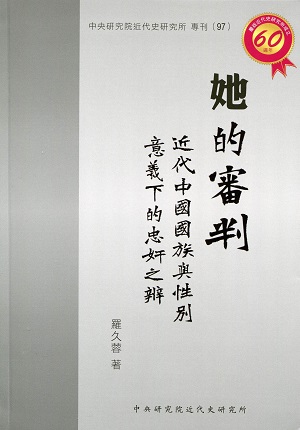 中央研究院近代史研究所 專刊(97)
60
她的審判
近代中國國族與性別
意義下的忠奸之辨
羅久蓉 著
中央研究院近代史研究所